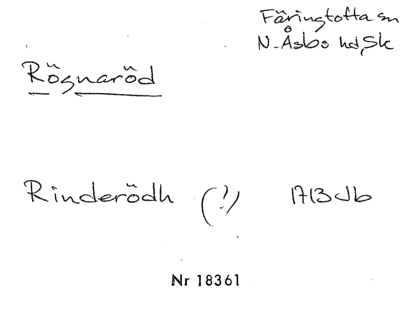 Färingtofta sn
N. Åsbo hd, Sk
Rögnaröd
Rinderödh (?) 1713 Jb
Nr 18361